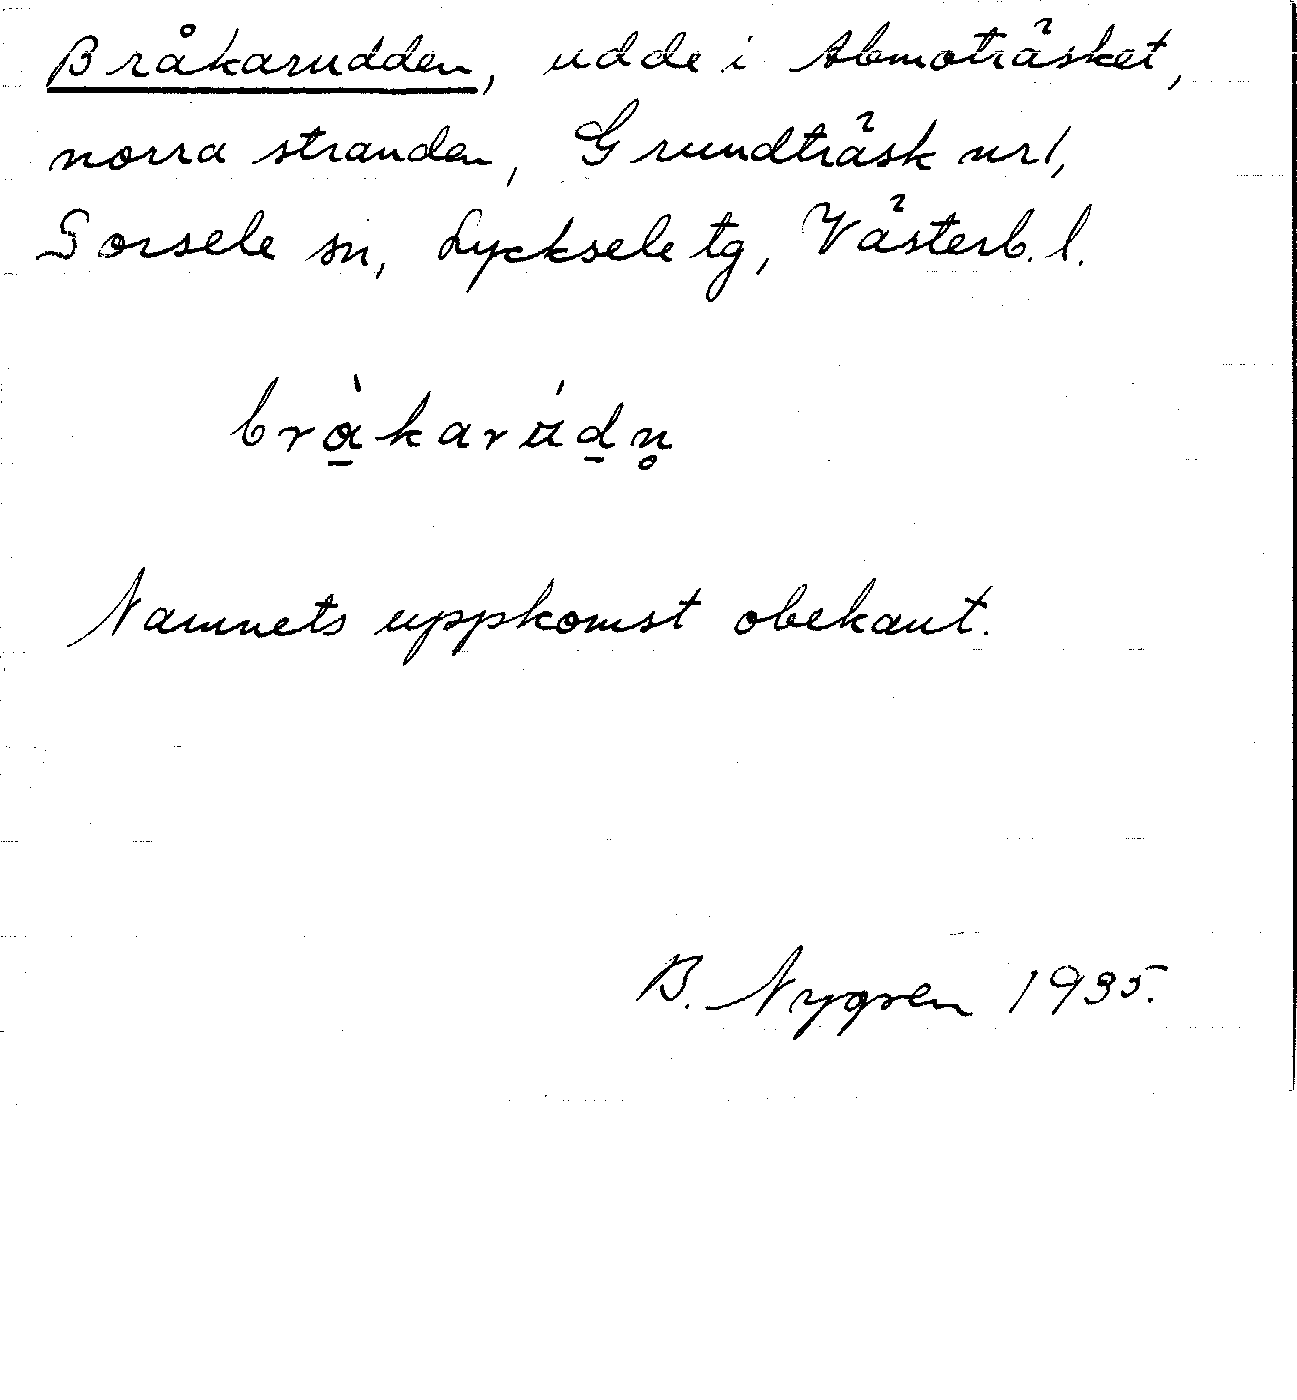 Bråkarudden, udde i Abmoträsket,
norra stranden, Grundträsk nr 1,
Sorsele sn, Lycksele tg, Västerb. l.
brå̀karúd̠n̥
Namnets uppkomst obekant.
B. Nygren 1935.